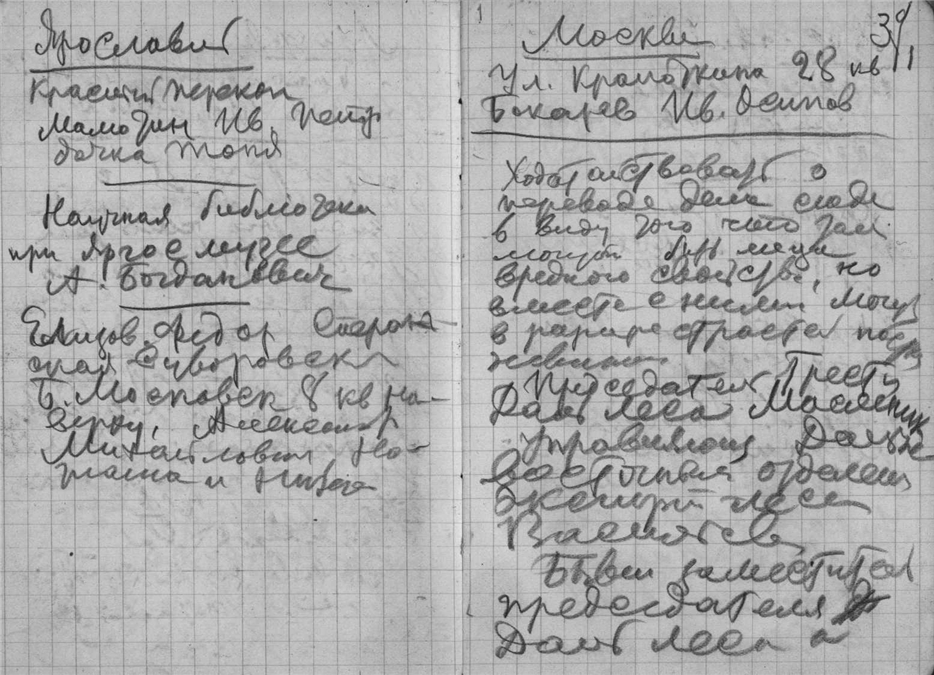 Ярославль
Красный перекоп
Мамозин Ив. Петр
дочка Тоня
Научная библиотека
при Яргосмузее
А. Богданович
Елизов Федор Старона
Суворовск
Б. Московск 8 кв на
верху, Александр
Михайлович
39
Москва
Ул. Кропоткина 28 кв 11
Бокарев Ив. Осипов
Ходатайствовать о
переводе дела сюда
в виду того что там
могут быть меши
вредного свойства, но
вместе с ними могу
в
Председатель Трест
Дальлеса Масленик
Управляющ Дальне
Восточным отделен
Экспортлеса
Васильев
Бывш заместител
председателя
Дальлеса